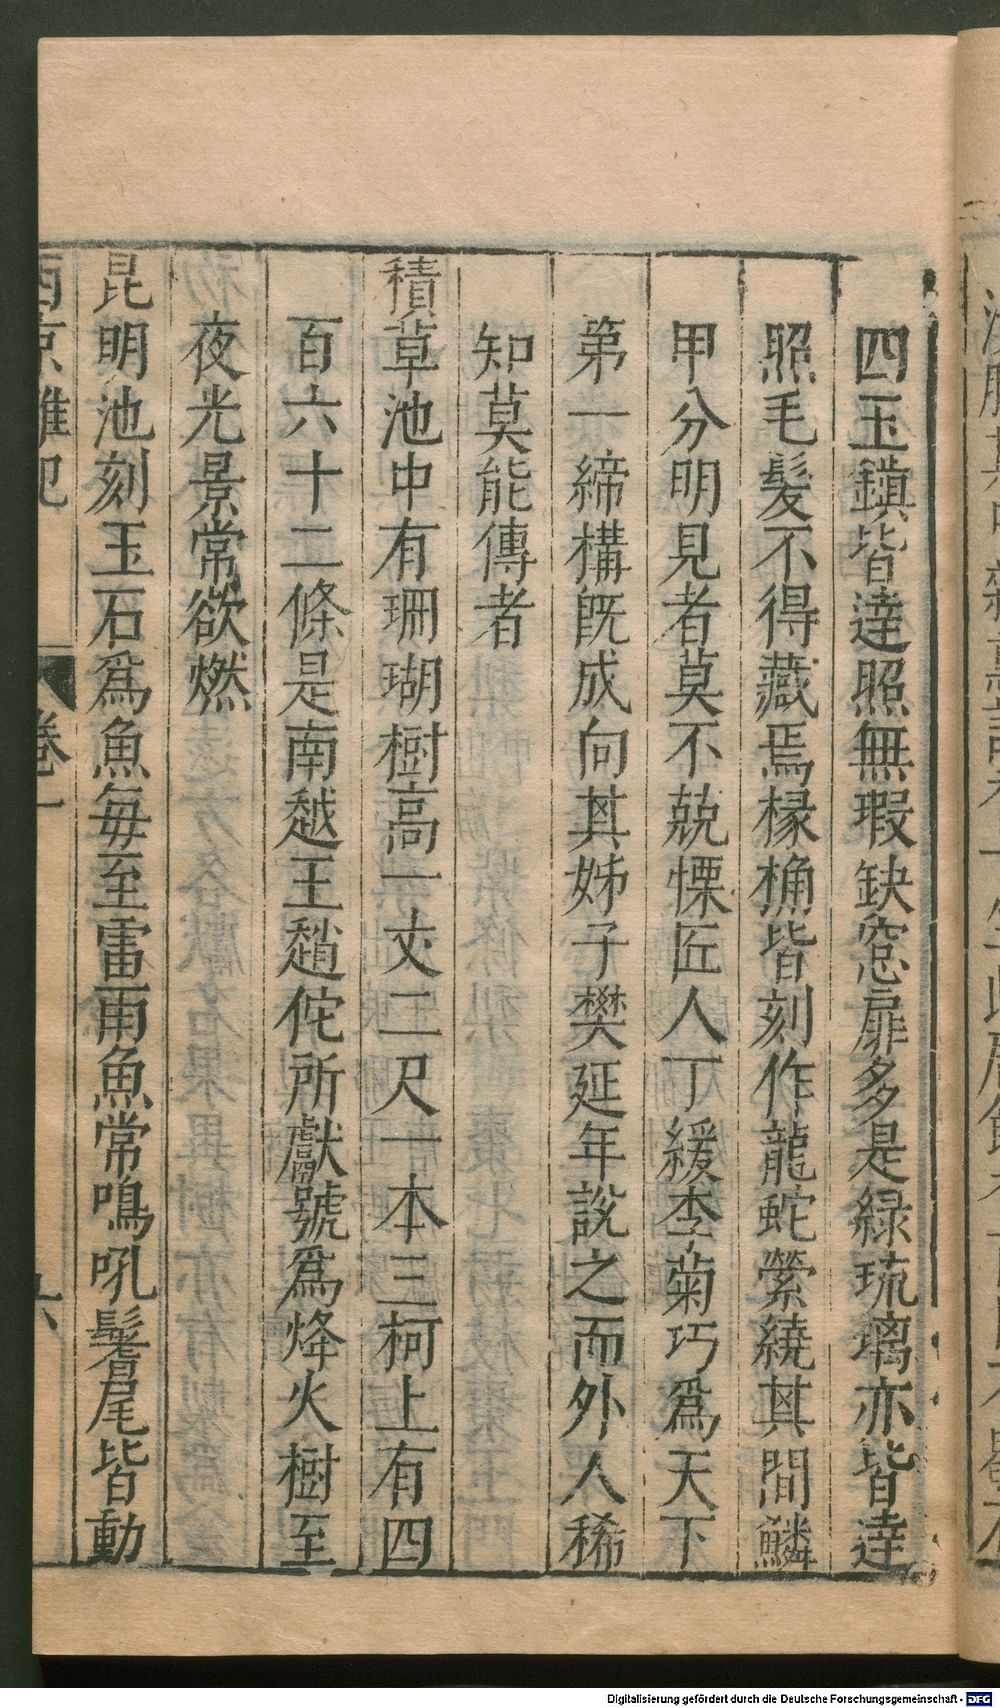 四玉鎮皆達照無瑕缺窓扉多是緑琉璃亦皆達
照毛髮不得藏焉椽桷皆刻作龍蛇縈繞其間鱗
甲分明見者莫不兢慄匠人丁緩李菊巧爲天下
第一締構旣成向其姊子樊延年說之而外人稀
知莫能傳者
積草池中有珊瑚樹高一丈二尺一本三柯上有四
百六十二條是南越王趙佗所獻號爲烽火樹至
夜光景常欲燃
昆明池刻玉石爲魚每至雷雨魚常鳴吼鬐尾皆動
西京雜記 卷一 六
Digitalisierung gefördert durch die Deutsche Forschungsgemeinschaft - DFG